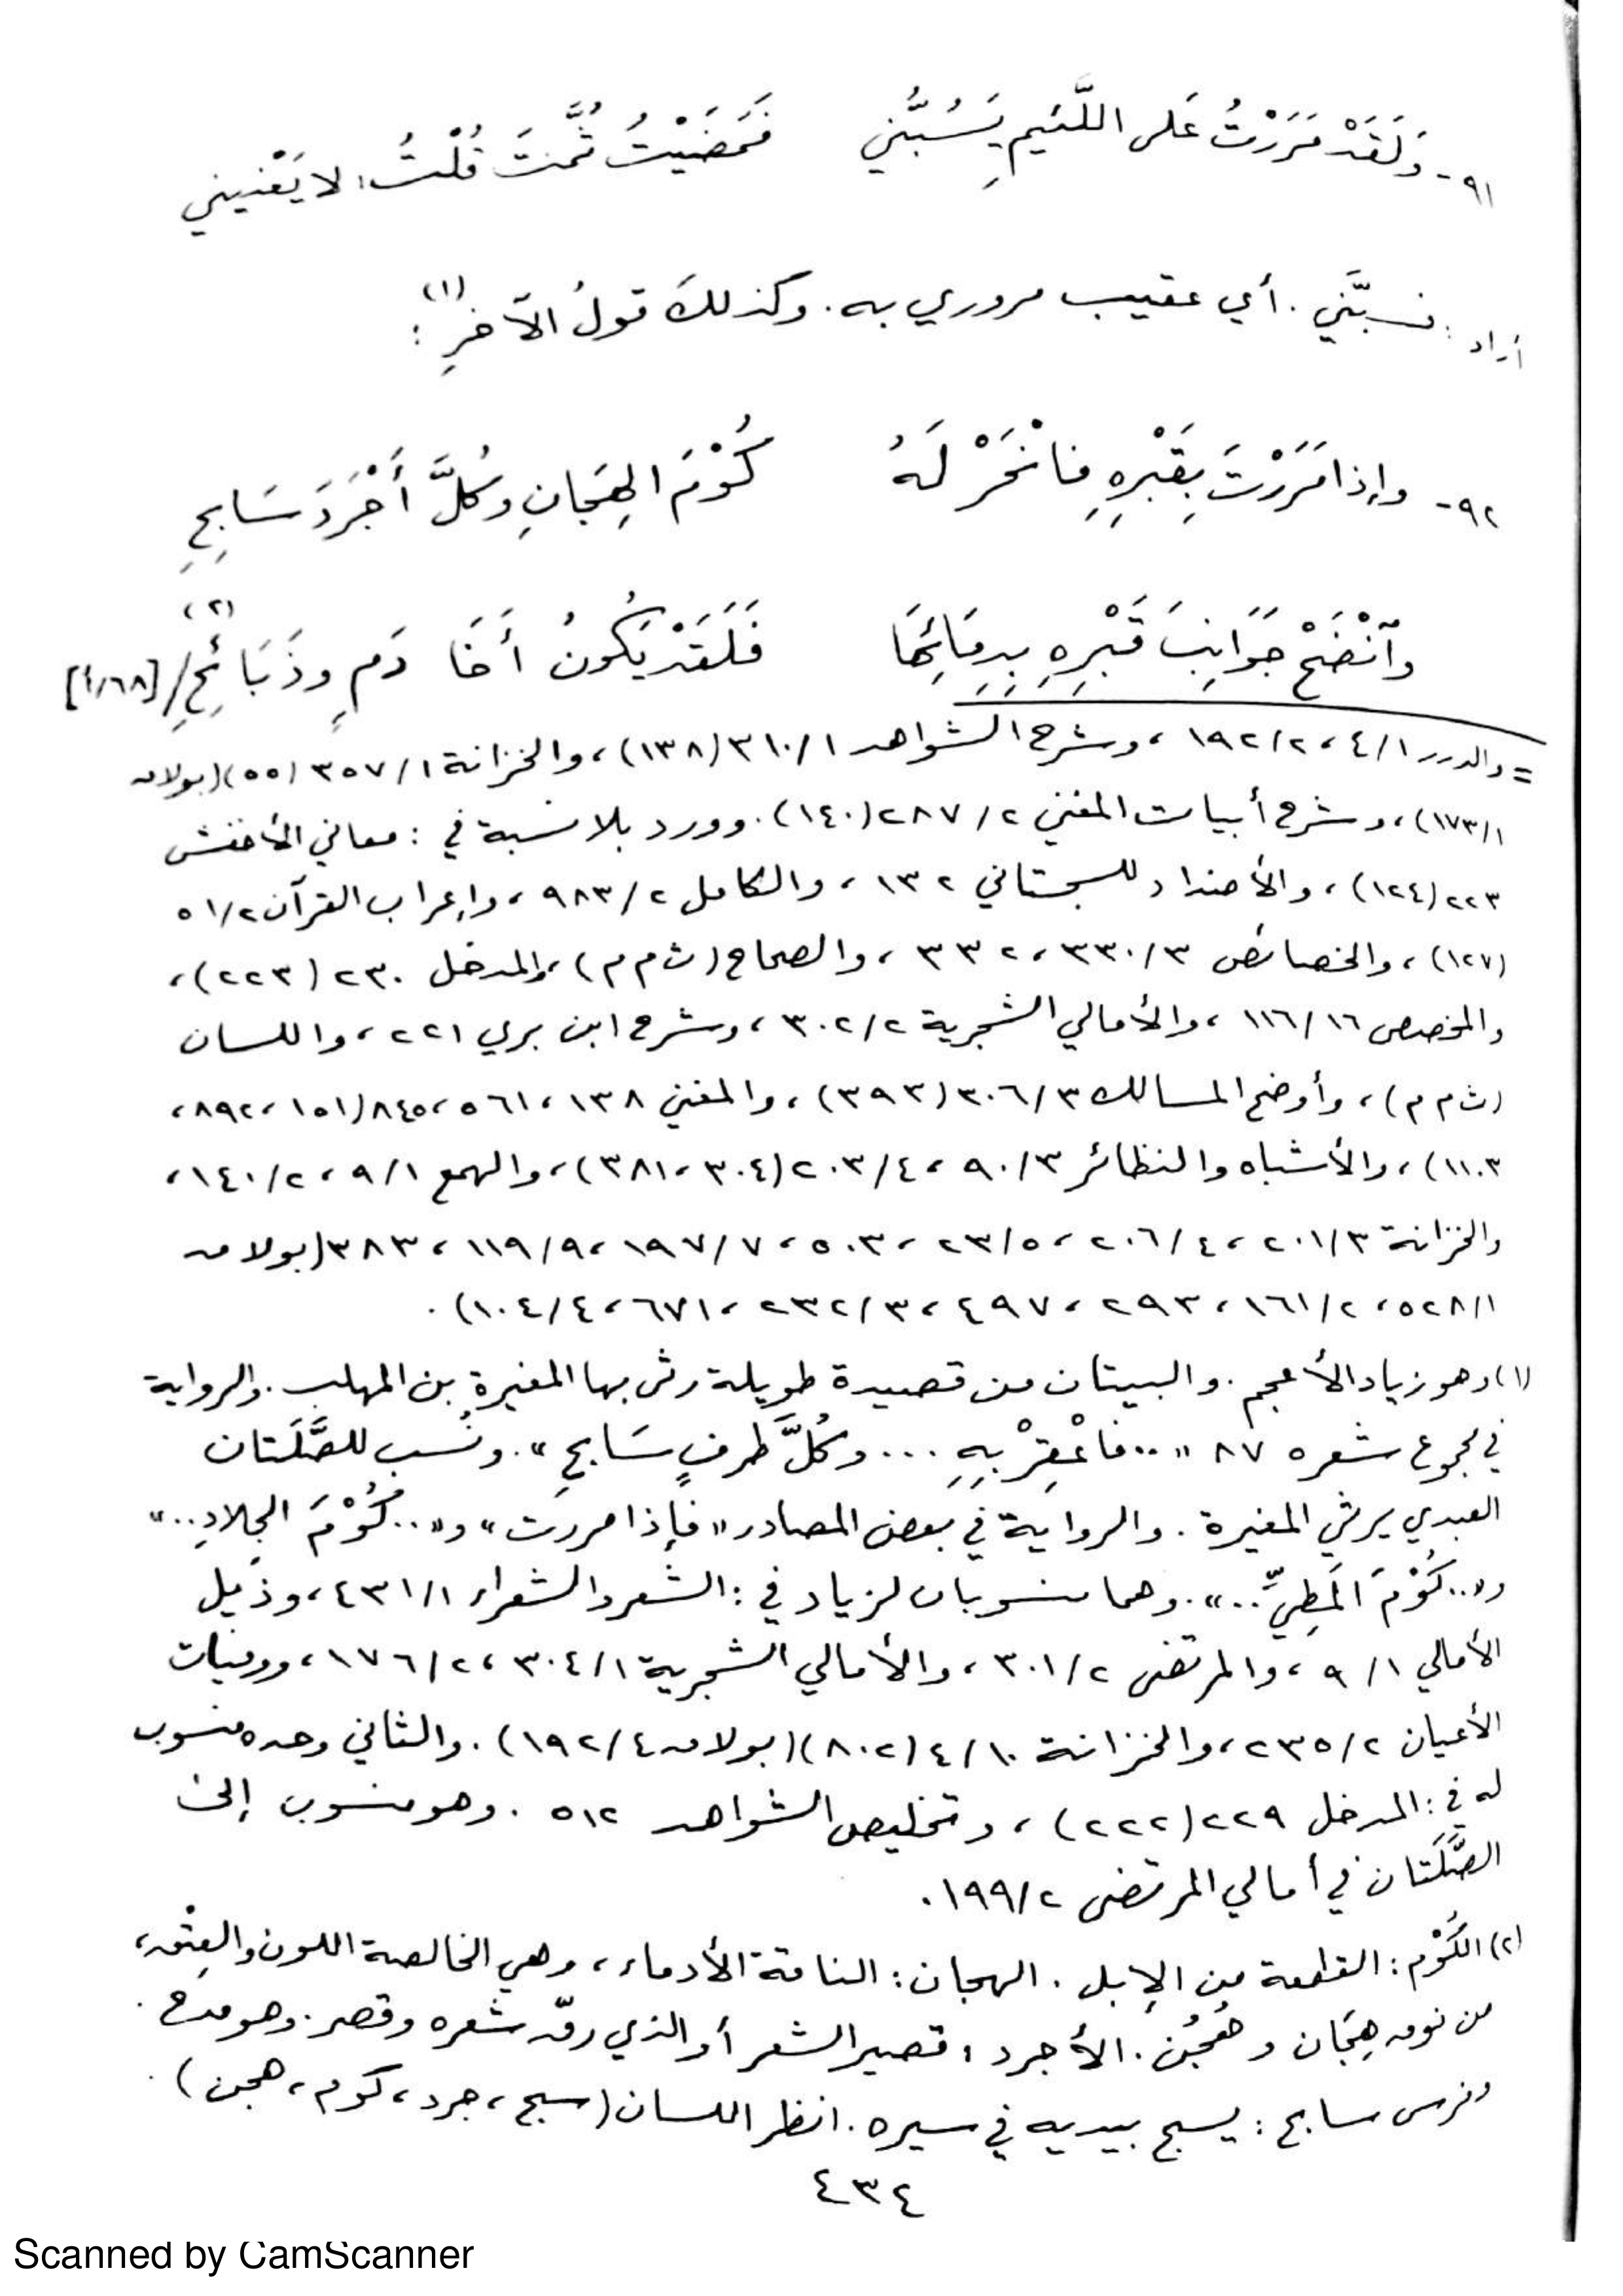 ٩١- وَلَقَدْ مَرَرْتُ عَلى اللَّئيمِ يَسُبُّني فَمَضَيْتُ ثُمَّتَ قُلْتُ: لا يَعْنيني
أراد: فسبَّني. أي عقيب مروري به. وكذلكَ قولُ الآخرِ(١):
٩٢- وإذا مَرَرْتَ بِقَبْرِهِ فانْحَرْ لَهُ كُوْمَ الهِجَانِ وكُلَّ أَجْرَدَ سَابِحِ
وآنْضَحْ جَوَانِبَ قَبْرِهِ بِدِمَائِهَا فَلَقَدْ يَكُونُ أَخَا دَمٍ وذَبَائِحِ(٢)/[٦٨/أ]
= والدرر ١/٤، ٢/١٩٢، وشرح الشواهد ١/٣١٠(١٣٨)، والخزانة ١/٣٥٧(٥٥)(بولاق
١/١٧٣)، وشرح أبيات المغني ٢/٢٨٧(١٤٠). وورد بلا نسبة في: معاني الأخفش
٢٢٣(١٢٤)، والأضداد للسجستاني ١٣٢، والكامل ٢/٩٨٣، وإعراب القرآن ٢/٥١
(١٢٧)، والخصائص ٣/٣٣٠، ٣٣٢، والصحاح (ث م م)، والمدخل ٢٣٠(٢٢٣)،
والمخصص ١٦/١١٦، والأمالي الشجرية ٢/٣٠٢، وشرح ابن بري ٢٢١، واللسان
(ث م م)، وأوضح المسالك ٣/٣٠٦(٣٩٣)، والمغني ١٣٨، ٥٦١، ٨٤٥(١٥١، ٨٩٢،
١١٠٣)، والأشباه والنظائر ٣/٩٠، ٤/٢٠٣(٣٠٤، ٣٨١)، والهمع ١/٩، ٢/١٤٠،
والخزانة ٣/٢٠١، ٤/٢٠٦، ٥/٢٣، ٥٠٣، ٧/١٩٧، ٩/١١٩، ٣٨٣(بولاق
١/٥٢٨، ٢/١٦١، ٢٩٣، ٤٩٧، ٣/٢٣٢، ٦٧١، ٤/١٠٤).
(١) وهو زياد الأعجم. والبيتان من قصيدة طويلة رثى بها المغيرة بن المهلب. والرواية
في مجموع شعره ٨٧ «..فاعْقِرْ بِهِ ... وكُلَّ طرفٍ سَابحِ». ونُسب للصَّلَتان
العبدي يرثي المغيرة. والرواية في بعض المصادر «فإذا مررت» و«..كُوْمَ الجِلادِ..»
و«..كُوْمَ المَطِيِّ..». وهما منسوبان لزياد في: الشعر والشعراء ١/٤٣١، وذَيل
الأمالي ١/٩، والمرتضى ٢/٣٠١، والأمالي الشجرية ١/٣٠٤، ٢/١٧٦، ووفيات
الأعيان ٢/٢٣٥، والخزانة ١٠/٤(٨٠٢)(بولاق ٤/١٩٢). والثاني وحده منسوب
له في: المدخل ٢٢٩(٢٢٢)، وتخليص الشواهد ٥١٢. وهو منسوب إلى
الصَّلَتان في أمالي المرتضى ٢/١٩٩.
(٢) الكُوْم: القطعة من الإبل. الهجان: الناقة الأدماء، وهي الخالصة اللون والعِتْق،
من نوق هِجَان وهُجُن. الأجرد: قصير الشعر أو الذي رقّ شعره وقصر. وهو مدح.
وفرس سابح: يسبح بيديه في سيره. انظر اللسان (سبح، جرد، كوم، هجن).
٤٣٤
Scanned by CamScanner